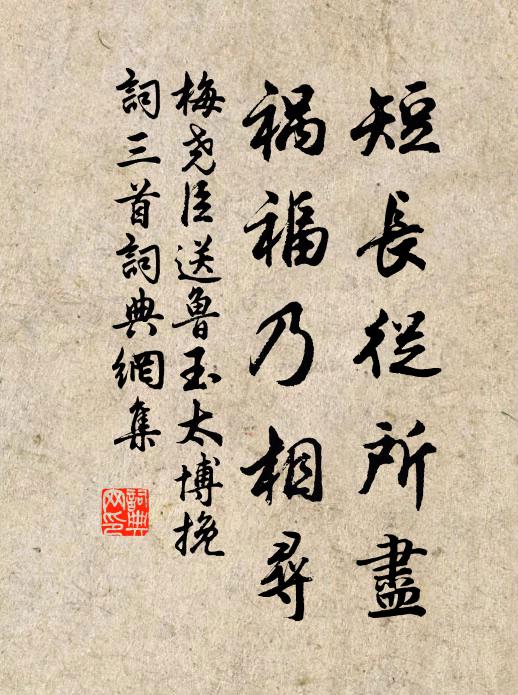 短長從所盡
禍福乃相尋
梅堯臣送魯玉太博挽
詞三首詞典網集
詞典网印